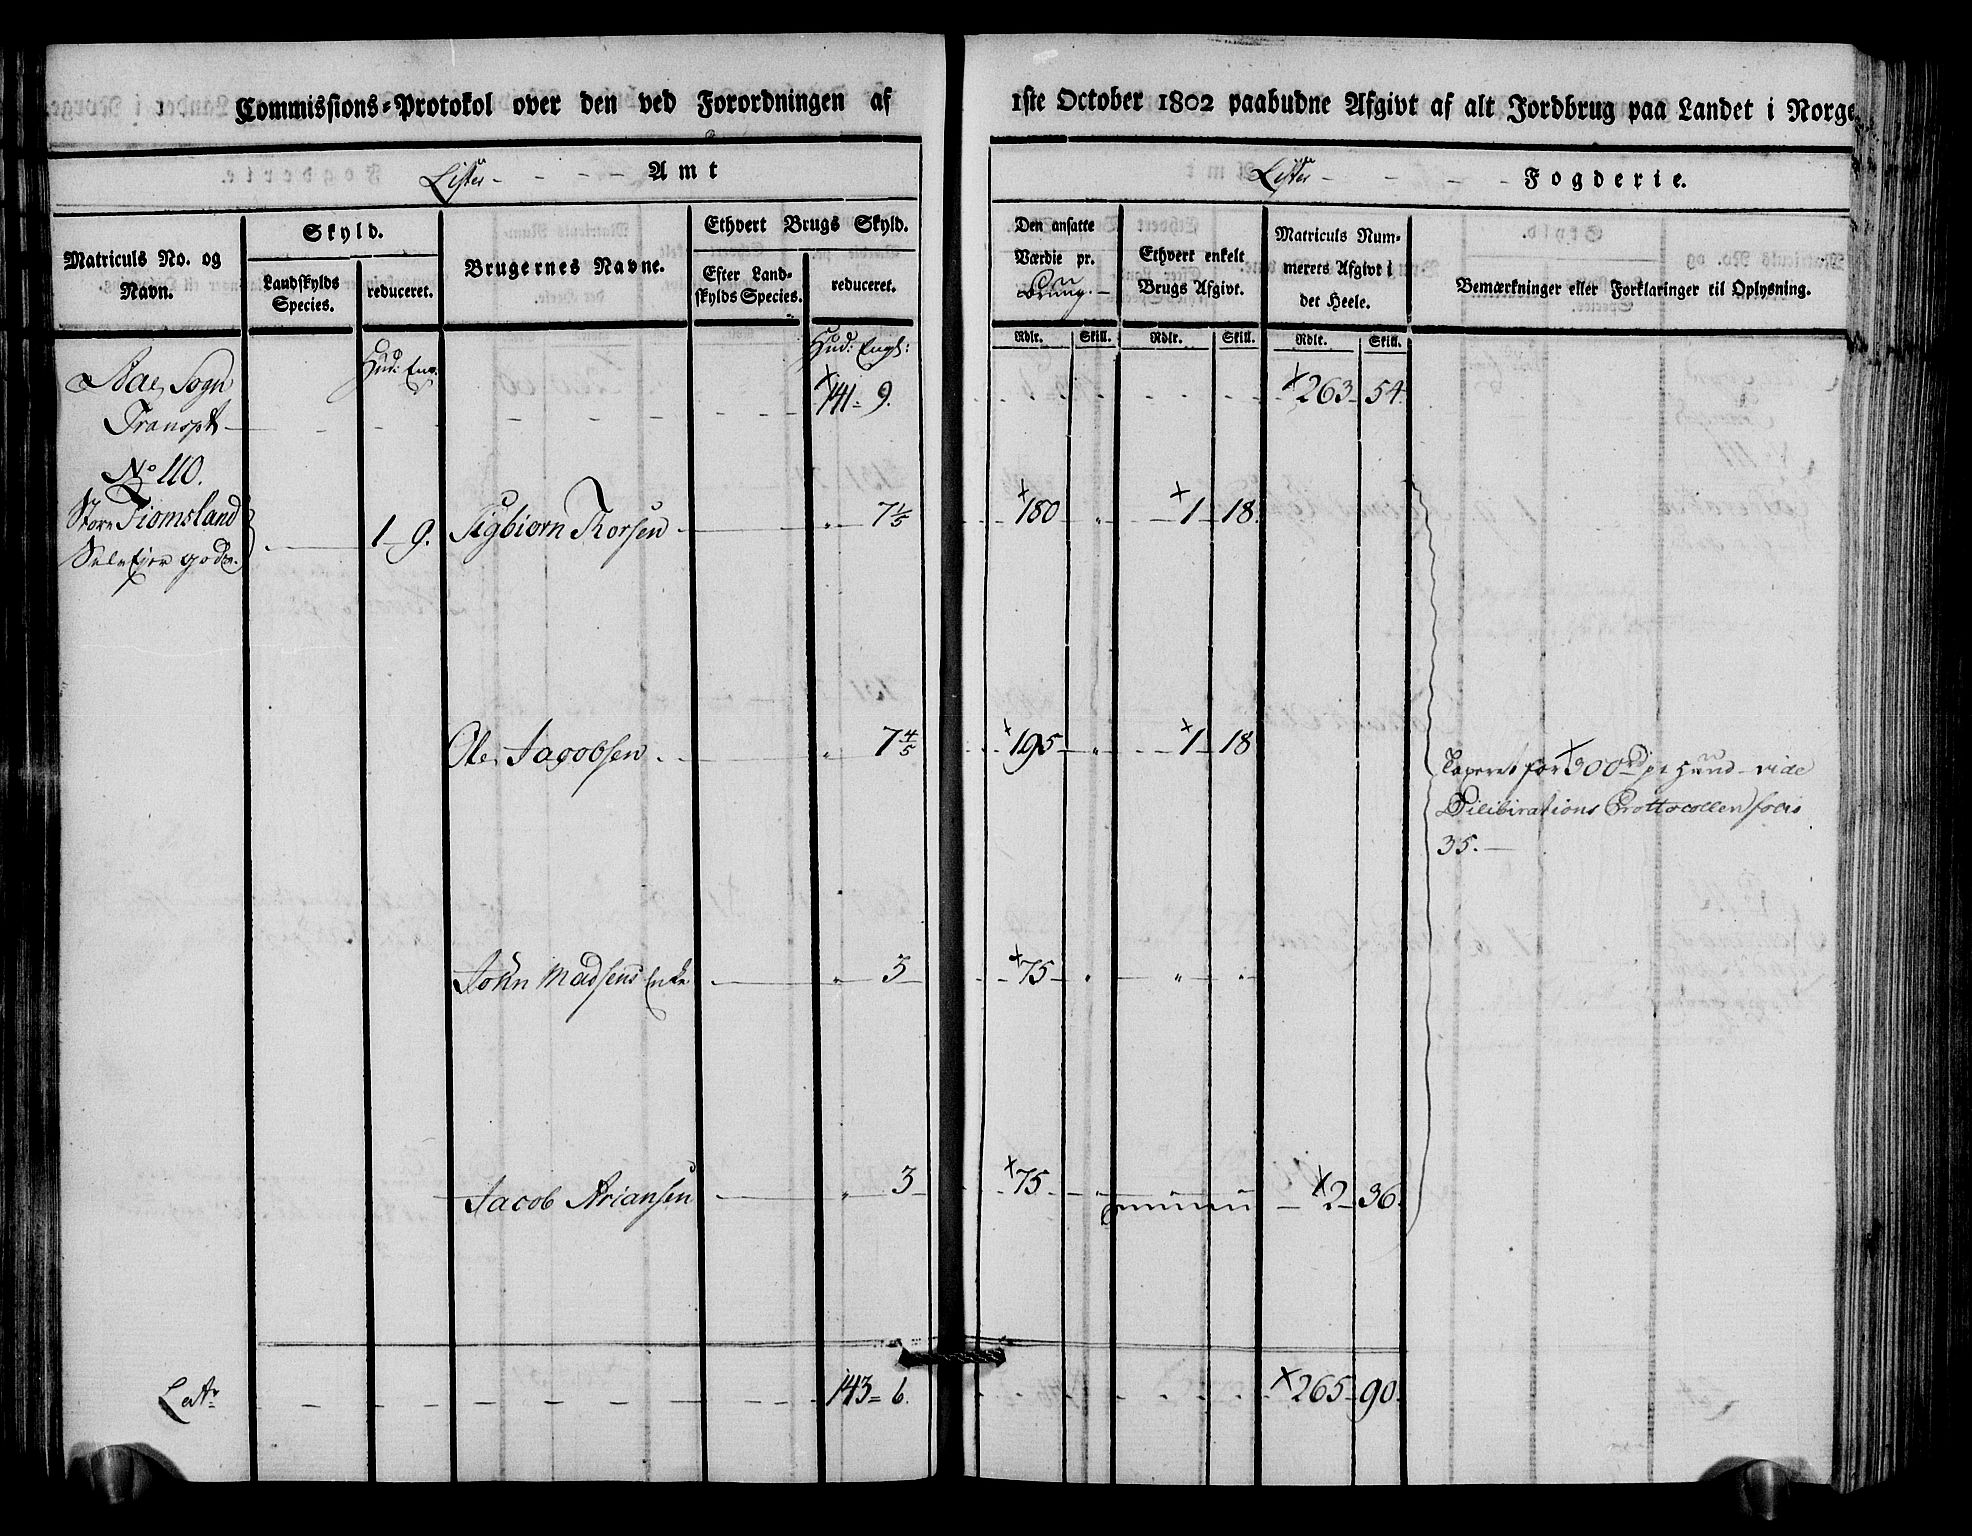 Commissions-Protokol over den ved Forordningen af 1ste October 1802 paabudne Afgivt af alt Jordbrug paa Landet i Norge
Lister - - - - Amt
Lister - - - - Fogderie.
Matriculs No. og Navn.
Skyld.
Landskylds Species.
reduceret.
Brugernes Navne.
Ethvert Brugs Skyld.
Efter Landskylds Species.
reduceret.
Den ansatte Værdie pr.
Ethvert enkelt Brugs Afgivt.
Matriculs Nummerets Afgivt i det Heele.
Bemærkninger eller Forklaringer til Oplysning.
Rdlr. Skill. Rdlr. Skill. Rdlr. Skill.
Hud: Eng. Hud: Engl:
Aae Sogn
Transpt 141 - 9. 263 - 54.
No 110.
Store Tiomsland 1 - 9. Sigbiørn Thorsen - „ - 7 1/5 180 „ 1 - 18.
Selvejer gods.
Ole Jacobsen - „ 7 4/5 195 - „ - 1 - 18
Taxeret for 300 rd pr Hund - vide
Deliberations Prottocollen folio
35. -
John Madsens Enke - „ - 3 - 75 - „ - „ „
Jacob Ariansen - „ - 3 - 75 - „ - 2 - 36.
Latr. 143 = 6. 265 - 90.